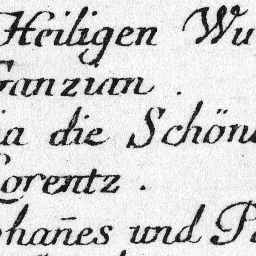 Heiligen Wu
Ganzian .
ia die Schön
Lorentz .
ohañes und P